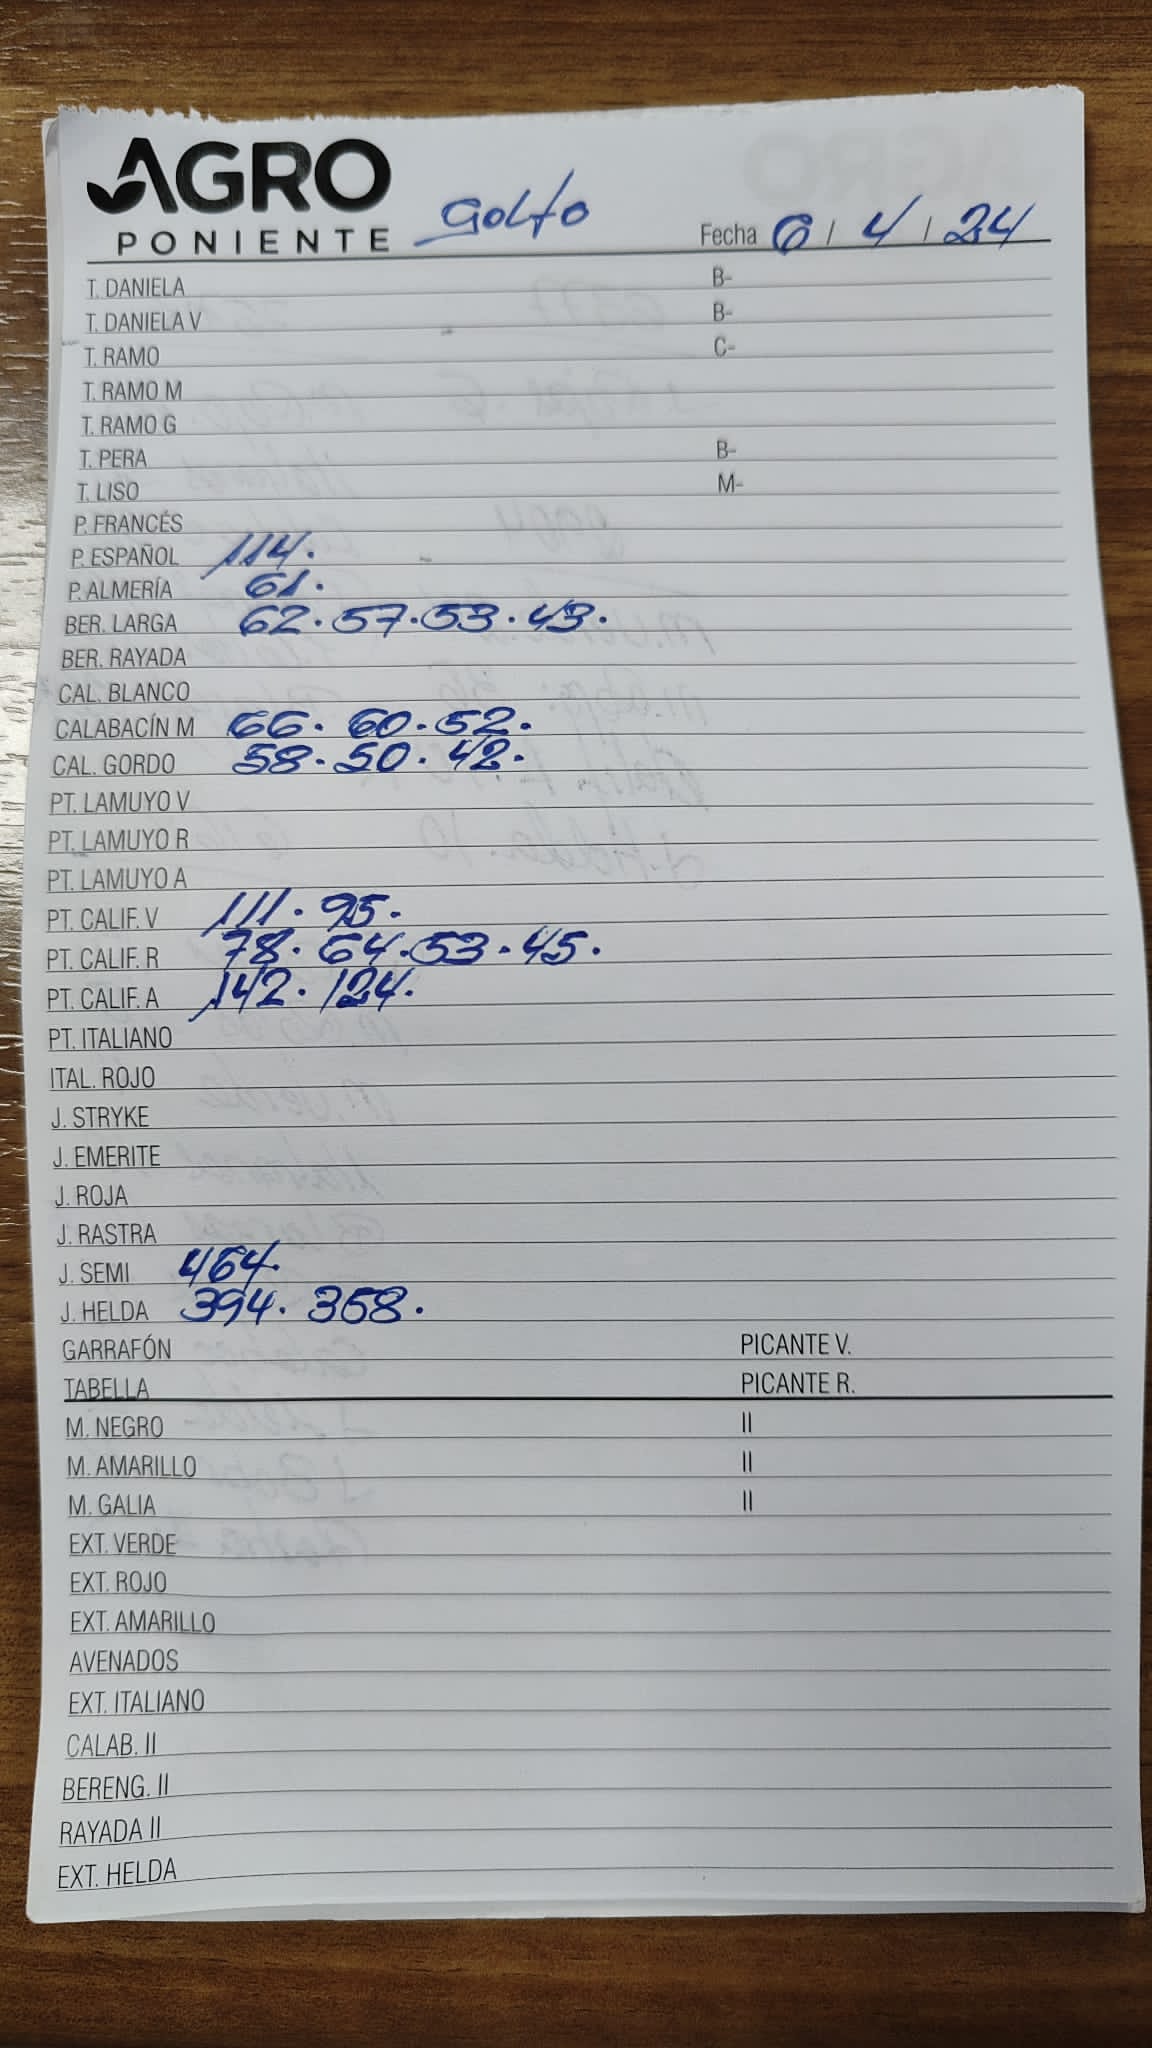 AGRO
PONIENTE Golfo Fecha 6 / 4 / 24
T. DANIELA B-
T. DANIELA V B-
T. RAMO C-
T. RAMO M
T. RAMO G
T. PERA B-
T. LISO M-
P. FRANCÉS
P. ESPAÑOL 114.
P. ALMERÍA 61.
BER. LARGA 62. 57. 53. 43.
BER. RAYADA
CAL. BLANCO
CALABACÍN M 66. 60. 52.
CAL. GORDO 58. 50. 42.
PT. LAMUYO V
PT. LAMUYO R
PT. LAMUYO A
PT. CALIF. V 111. 95.
PT. CALIF. R 78. 64. 53. 45.
PT. CALIF. A 142. 124.
PT. ITALIANO
ITAL. ROJO
J. STRYKE
J. EMERITE
J. ROJA
J. RASTRA
J. SEMI 464.
J. HELDA 394. 358.
GARRAFÓN PICANTE V.
TABELLA PICANTE R.
M. NEGRO II
M. AMARILLO II
M. GALIA II
EXT. VERDE
EXT. ROJO
EXT. AMARILLO
AVENADOS
EXT. ITALIANO
CALAB. II
BERENG. II
RAYADA II
EXT. HELDA